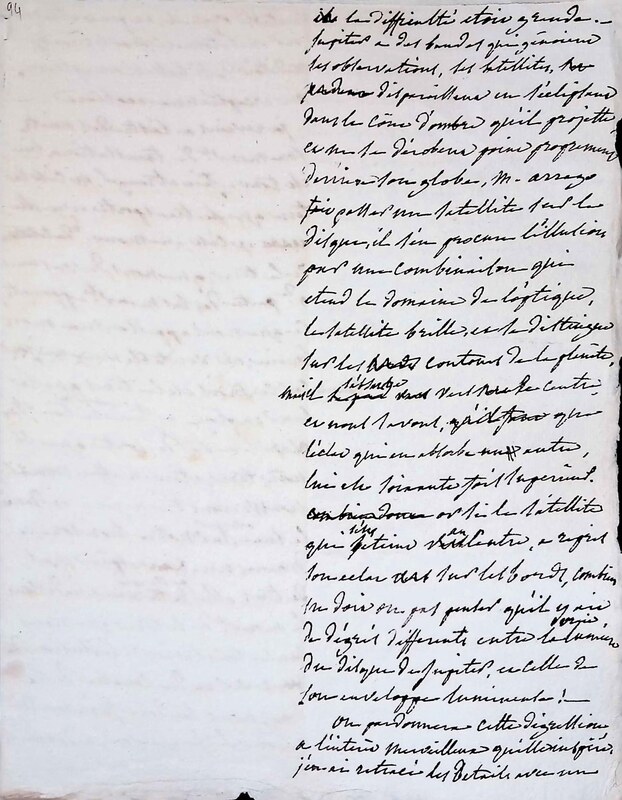 94
la difficulté etoit grande. —
Jupiter a des bandes qui génoient
les observations, ses satellites,
disparaissent en s'eclipsant
dans le cône d'ombre qu'il projette
et ne se dérobent point proprement
derriere son globe, M. arrago
fait passer un satellite sur le
disque, il s'en procure l'illusion
par une combinaison qui
etend le domaine de l'optique,
le satellite brille, et se distingue
sur les bords contours de la planète,
mais il s'efface vers le centre,
et nous savons, qu'il faut que
l'éclat qui en absorbe un autre,
lui est soixante fois superieur.
combien donc or si le satellite
qui s'éteint au centre, a repris
son eclat sur les bords, combien
ne doit on pas penser qu'il y ait
de dégrés differents entre la lumiere
du disque de Jupiter, et celle de
son enveloppe lumineuse! —
On pardonnera cette digression
a l'interêt merveilleux qu'elle inspire,
j'en ai retracé les Details avec un